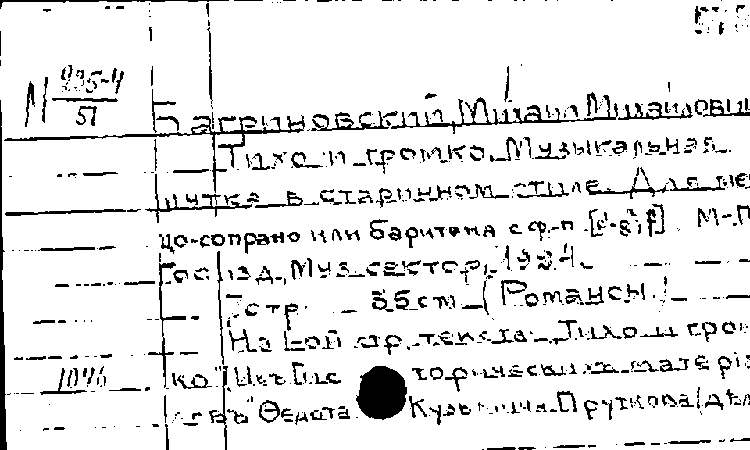 М 235-4
51
Багриновский, Михаил Михайлови
Тихо и громко. Музыкальная
шутка в старинном стиле. Для ме
цо-сопрано или баритона с ф-п. М-П
Гос. изд., Муз. сектор, 1924.
стр. 35 cm (Романсы)
На 1-ой стр. текста: Тихо и гром
1046
ко "Изъ Гис торическихъ матерi
"Ѳедота Кузьмича Пруткова (дѣ